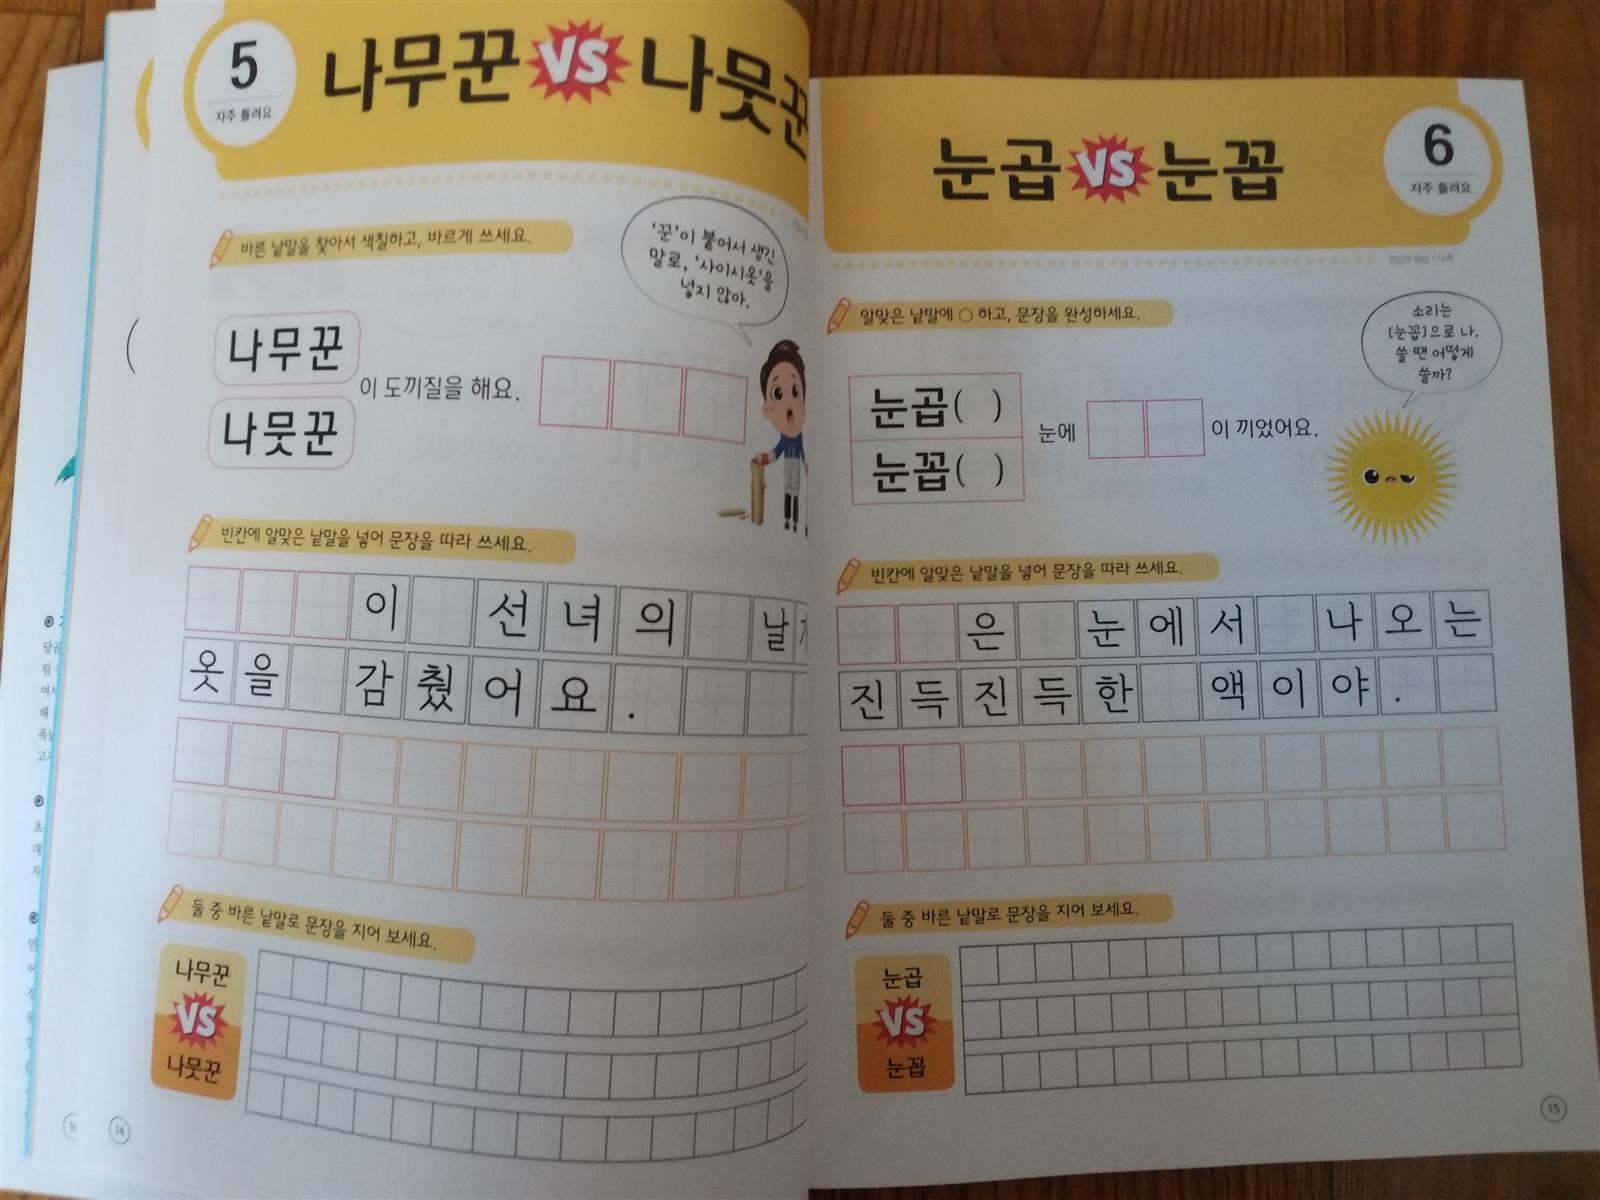 5
자주 틀려요
나무꾼 VS 나뭇꾼
바른 낱말을 찾아서 색칠하고, 바르게 쓰세요.
'꾼'이 붙어서 생긴
말로, '사이시옷'을
넣지 않아.
나무꾼
나뭇꾼
이 도끼질을 해요.
빈칸에 알맞은 낱말을 넣어 문장을 따라 쓰세요.
이 선녀의 날
옷을 감췄어요.
둘 중 바른 낱말로 문장을 지어 보세요.
나무꾼
VS
나뭇꾼
14
눈곱 VS 눈꼽
6
자주 틀려요
알맞은 낱말에 ○ 하고, 문장을 완성하세요.
소리는
[눈꼽]으로 나.
쓸 땐 어떻게
쓸까?
눈곱( )
눈꼽( )
눈에 이 끼었어요.
빈칸에 알맞은 낱말을 넣어 문장을 따라 쓰세요.
은 눈에서 나오는
진득진득한 액이야.
둘 중 바른 낱말로 문장을 지어 보세요.
눈곱
VS
눈꼽
15